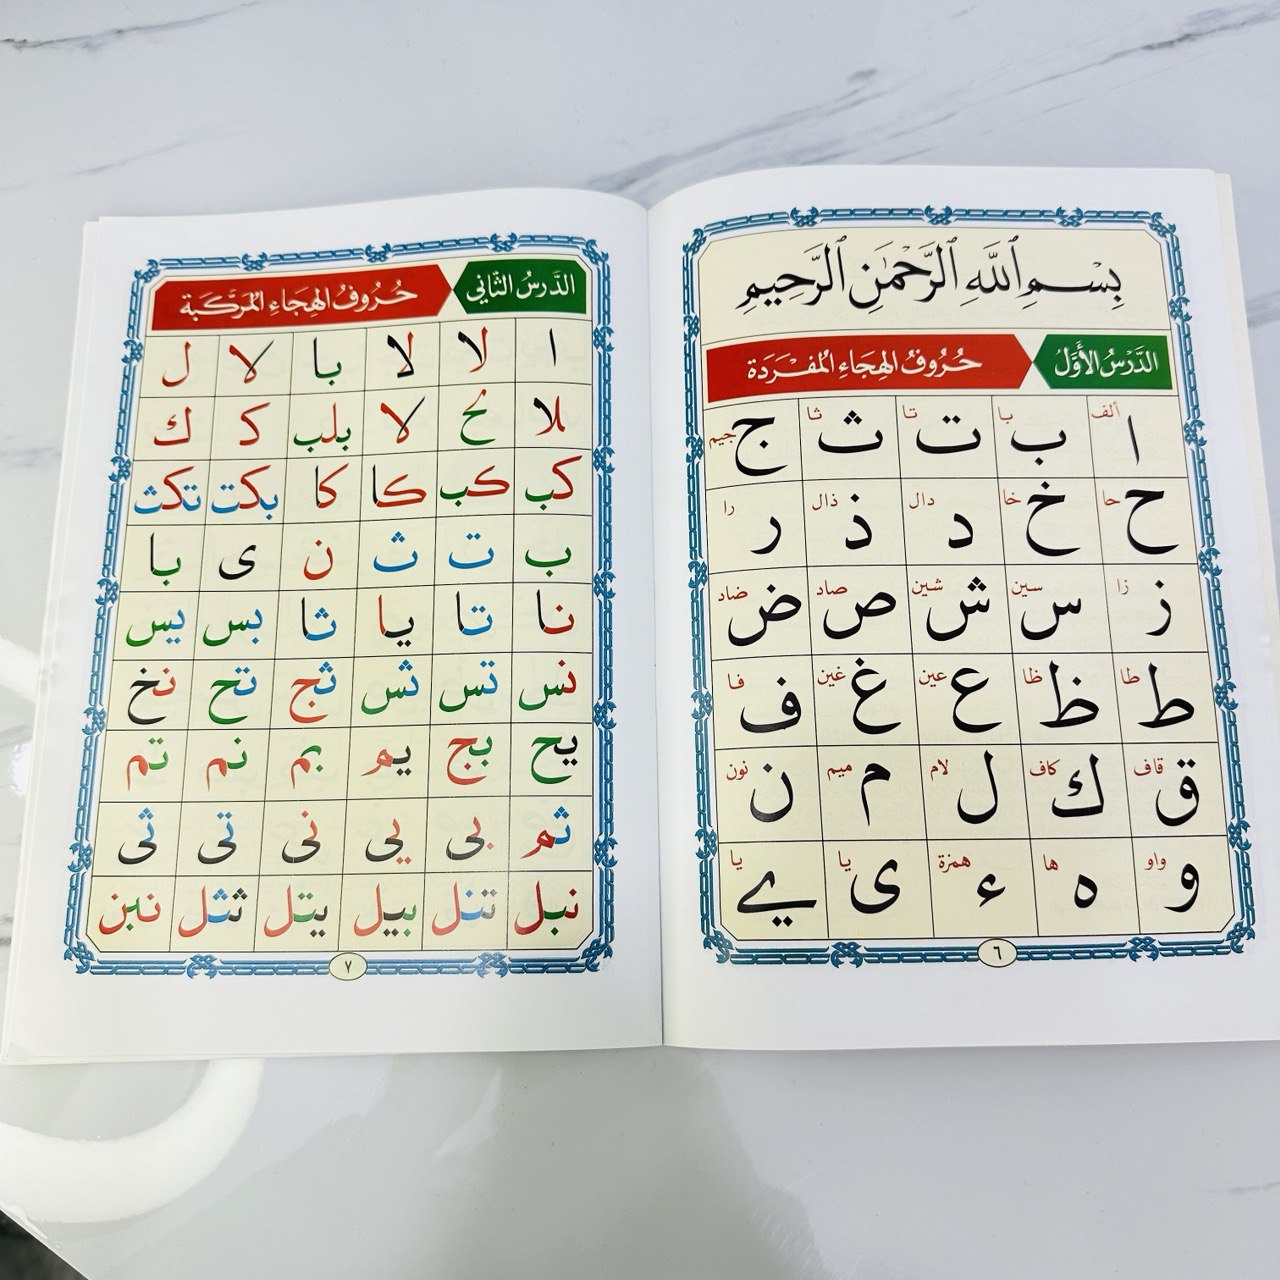 بِسْمِ ٱللَّهِ ٱلرَّحْمَٰنِ ٱلرَّحِيمِ
الدَّرْسُ الأَوَّلُ حُرُوفُ الهِجَاءِ المُفْرَدَة
ا ألف ب با ت تا ث ثا ج جيم
ح حا خ خا د دال ذ ذال ر را
ز زا س سين ش شين ص صاد ض ضاد
ط طا ظ ظا ع عين غ غين ف فا
ق قاف ك كاف ل لام م ميم ن نون
و واو ه ها ء همزة ى يا ے يا
٦
الدَّرسُ الثَّاني حُرُوفُ الهِجَاءِ المُرَكَّبَة
ا لا لا با لا ل
لا لا بلب كـ ك
كب كب كا كا بكت تكث
ب ت ث ن ى با
نا تا يا ثا بس يس
نس تس ثس ثج تح نخ
يح بج يم بم نم تم
ثم بى يى نى تى ثى
نبل تنل بيل يتل ثثل نبن
٧